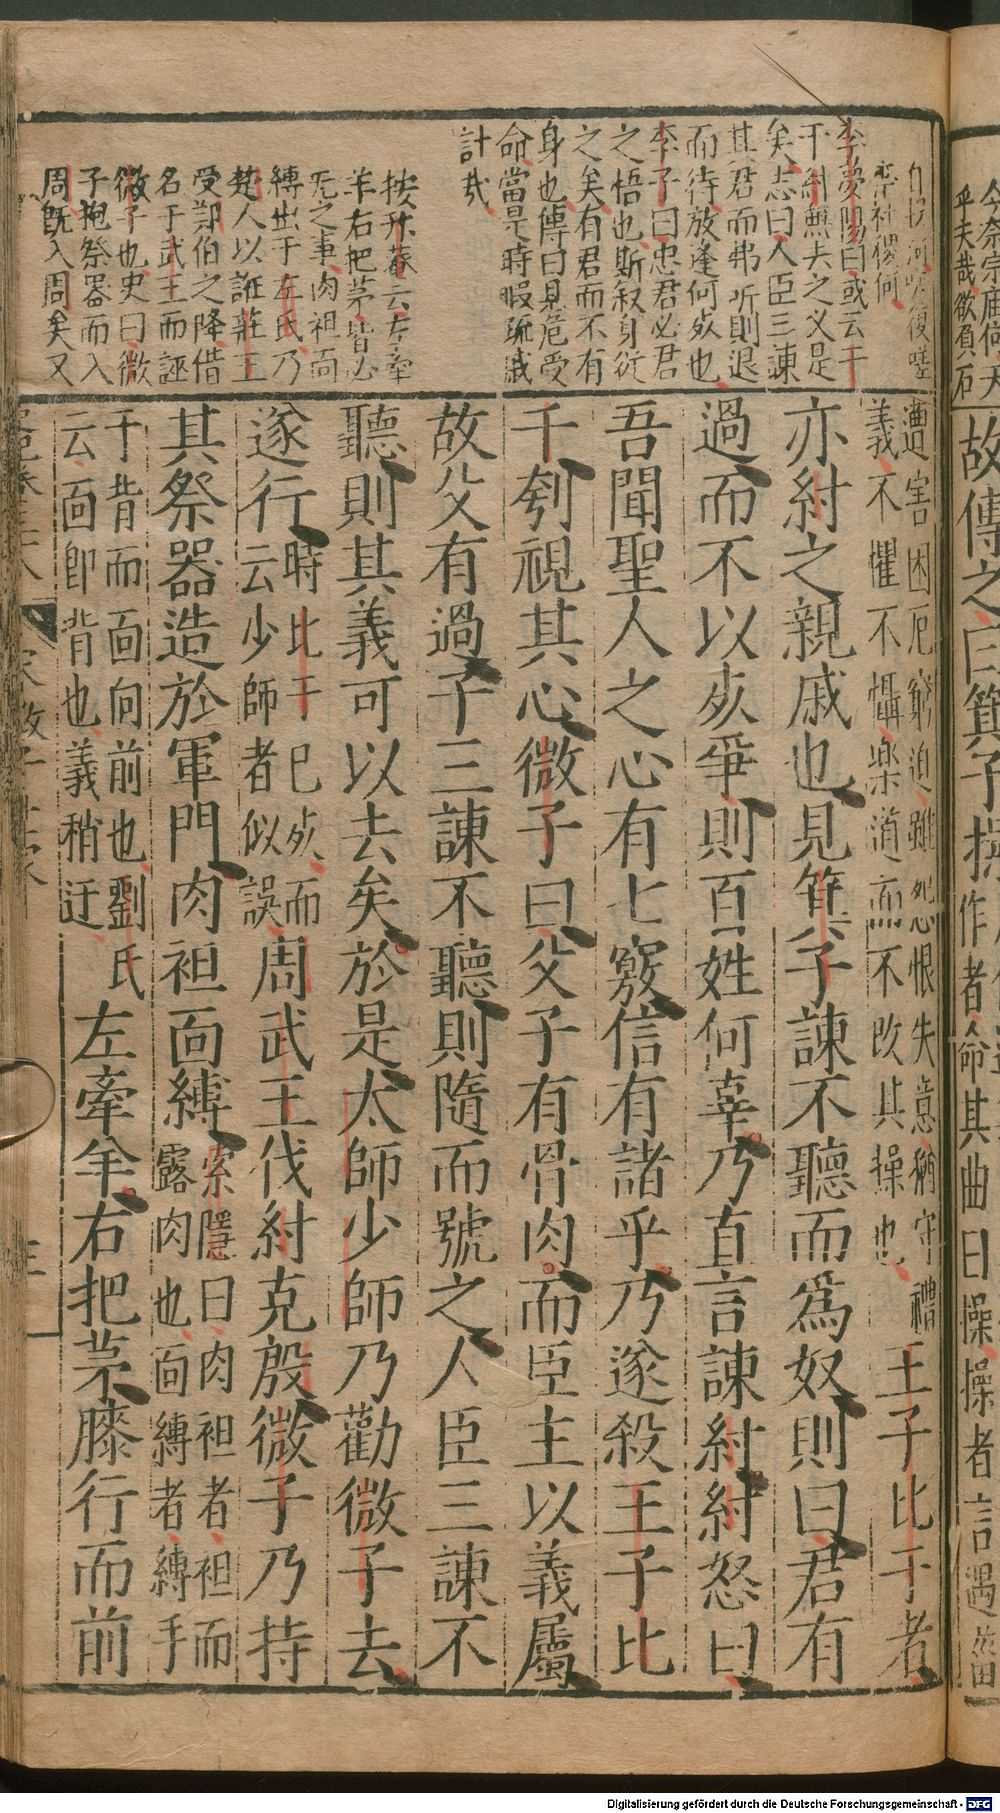 李夢陽曰或云干
于紂無去之义是
矣志曰人臣三諫
其君而弗听則退
而待放逢何歿也
李子曰忠君必君
之悟也斯叙身従
之矣有君而不有
身也傳曰見危受
命當是時暇疏戚
計哉
按升菴云左牽
羊右把茅皆必
无之事肉袒面
縛出于左氏乃
楚人以誑莊王
受鄭伯之降借
名于武王而誣
微子也史曰微
子抱祭器而入
周旣入周矣又
遭害困厄窮迫雖怨恨失意猶守禮
義不懼不懾樂道而不改其操也
王子比干者
亦紂之親戚也見箕子諫不聽而爲奴則曰君有
過而不以歿爭則百姓何辜乃直言諫紂紂怒曰
吾聞聖人之心有七竅信有諸乎乃遂殺王子比
干刳視其心微子曰父子有骨肉而臣主以義屬
故父有過子三諫不聽則隨而號之人臣三諫不
聽則其義可以去矣於是太師少師乃勸微子去
遂行
時比干已歿而
云少師者似誤
周武王伐紂克殷微子乃持
其祭器造於軍門肉袒面縛
索隱曰肉袒者袒而
露肉也面縛者縛手
于背而面向前也劉氏
云面即背也義稍迂
左牽羊右把茅膝行而前
故傳之曰箕子操
作者命其曲曰操操者言遇菑
Digitalisierung gefördert durch die Deutsche Forschungsgemeinschaft - DFG